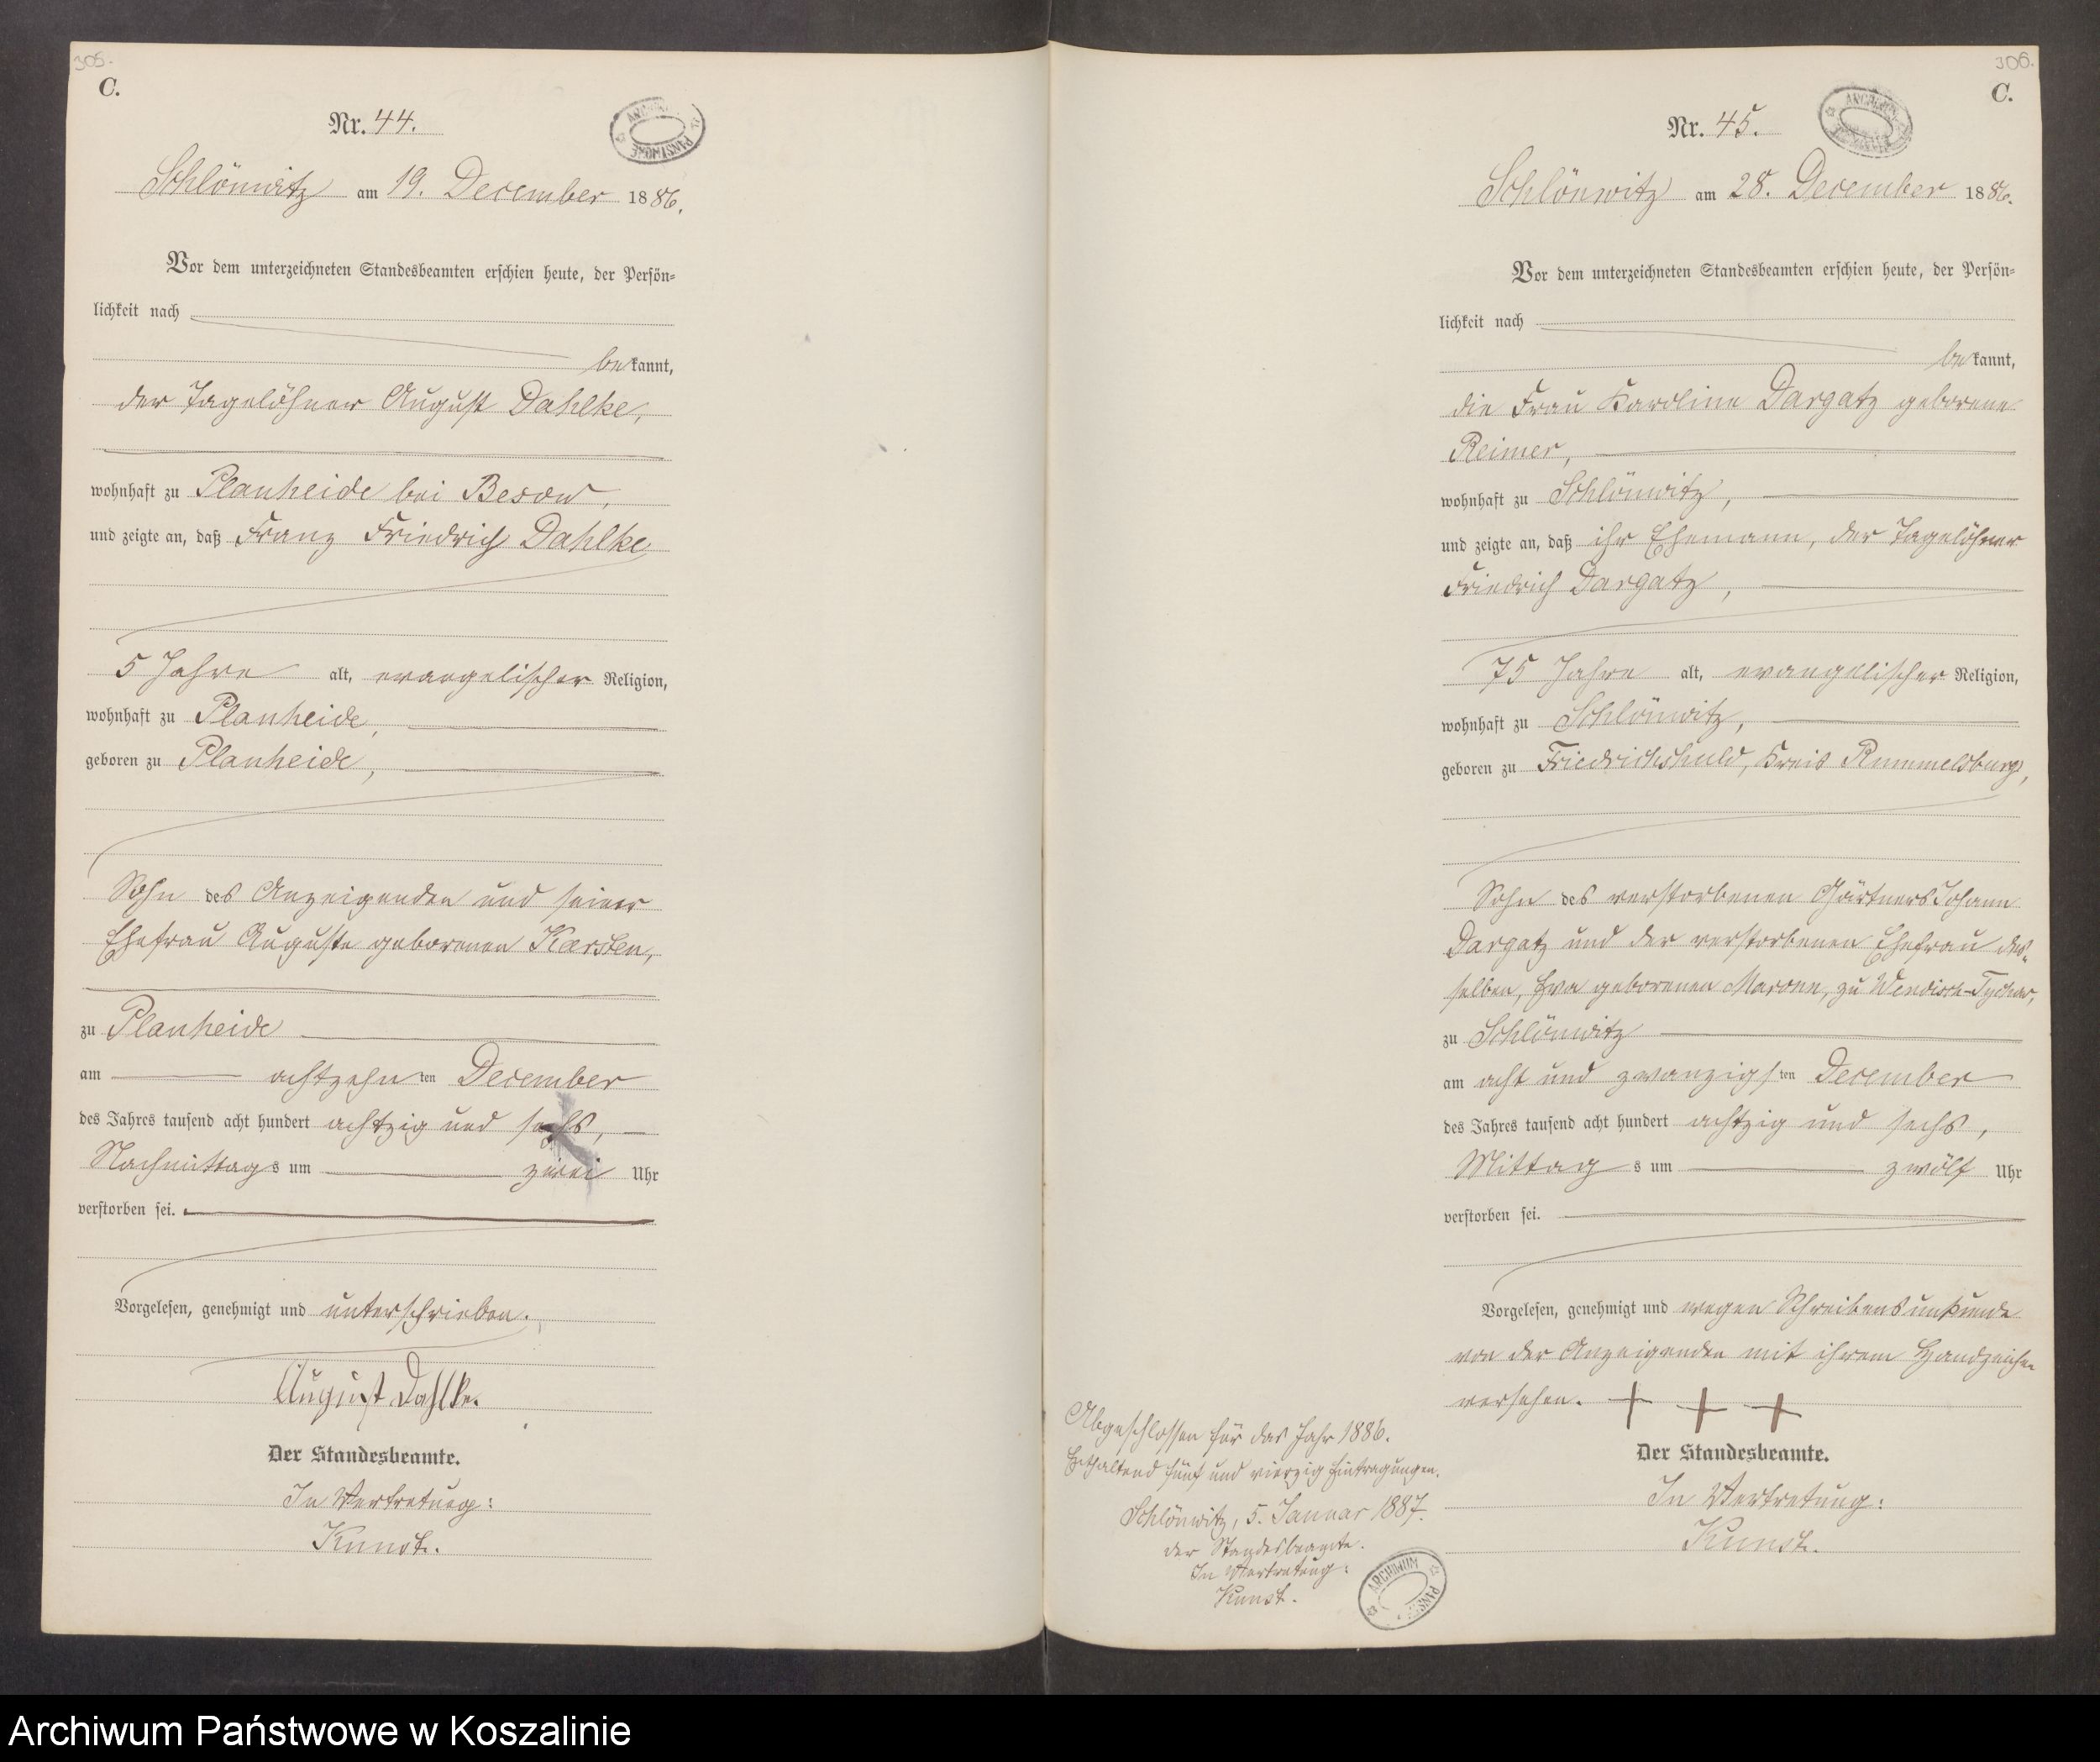 305.
C.
Nr. 44.
Schlönwitz am 19. December 1886.
Vor dem unterzeichneten Standesbeamten erschien heute, der Persön-
lichkeit nach
bekannt,
der Tagelöhner August Dahlke,
wohnhaft zu Planheide bei Besow,
und zeigte an, daß Franz Friedrich Dahlke
5 Jahre alt, evangelischer Religion,
wohnhaft zu Planheide,
geboren zu Planheide,
Sohn des Anzeigenden und seiner
Ehefrau Auguste geborenen Karsten,
zu Planheide
am achtzehnten December
des Jahres tausend acht hundert achtzig und sechs,
Nachmittags um zwei Uhr
verstorben sei.
Vorgelesen, genehmigt und unterschrieben.
August Dahlke.
Der Standesbeamte.
In Vertretung:
Kunst.
306.
C.
Nr. 45.
Schlönwitz am 28. December 1886.
Vor dem unterzeichneten Standesbeamten erschien heute, der Persön-
lichkeit nach
bekannt,
die Frau Karoline Dargatz geborene
Reimer,
wohnhaft zu Schlönwitz,
und zeigte an, daß ihr Ehemann, der Tagelöhner
Friedrich Dargatz,
75 Jahre alt, evangelischer Religion,
wohnhaft zu Schlönwitz,
geboren zu Friedrichshuld, Kreis Rummelsburg,
Sohn des verstorbenen Gärtners Johann
Dargatz und der verstorbenen Ehefrau des-
selben, Eva geborenen Maronn, zu Wendisch-Tychow,
zu Schlönwitz
am acht und zwanzigsten December
des Jahres tausend acht hundert achtzig und sechs,
Mittags um zwölf Uhr
verstorben sei.
Vorgelesen, genehmigt und wegen Schreibensunkunde
von der Anzeigenden mit ihrem Handzeichen
versehen. + + +
Der Standesbeamte.
In Vertretung:
Kunst.
Abgeschlossen für das Jahr 1886.
Enthaltend fünf und vierzig Eintragungen.
Schlönwitz, 5. Januar 1887.
der Standesbeamte.
In Vertretung:
Kunst.
ARCHIWUM PAŃSTW
Archiwum Państwowe w Koszalinie